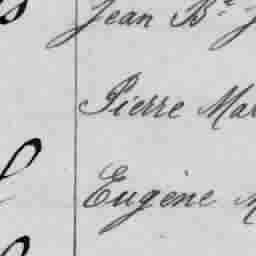 Jean Bte J
Pierre Mar
Eugène M